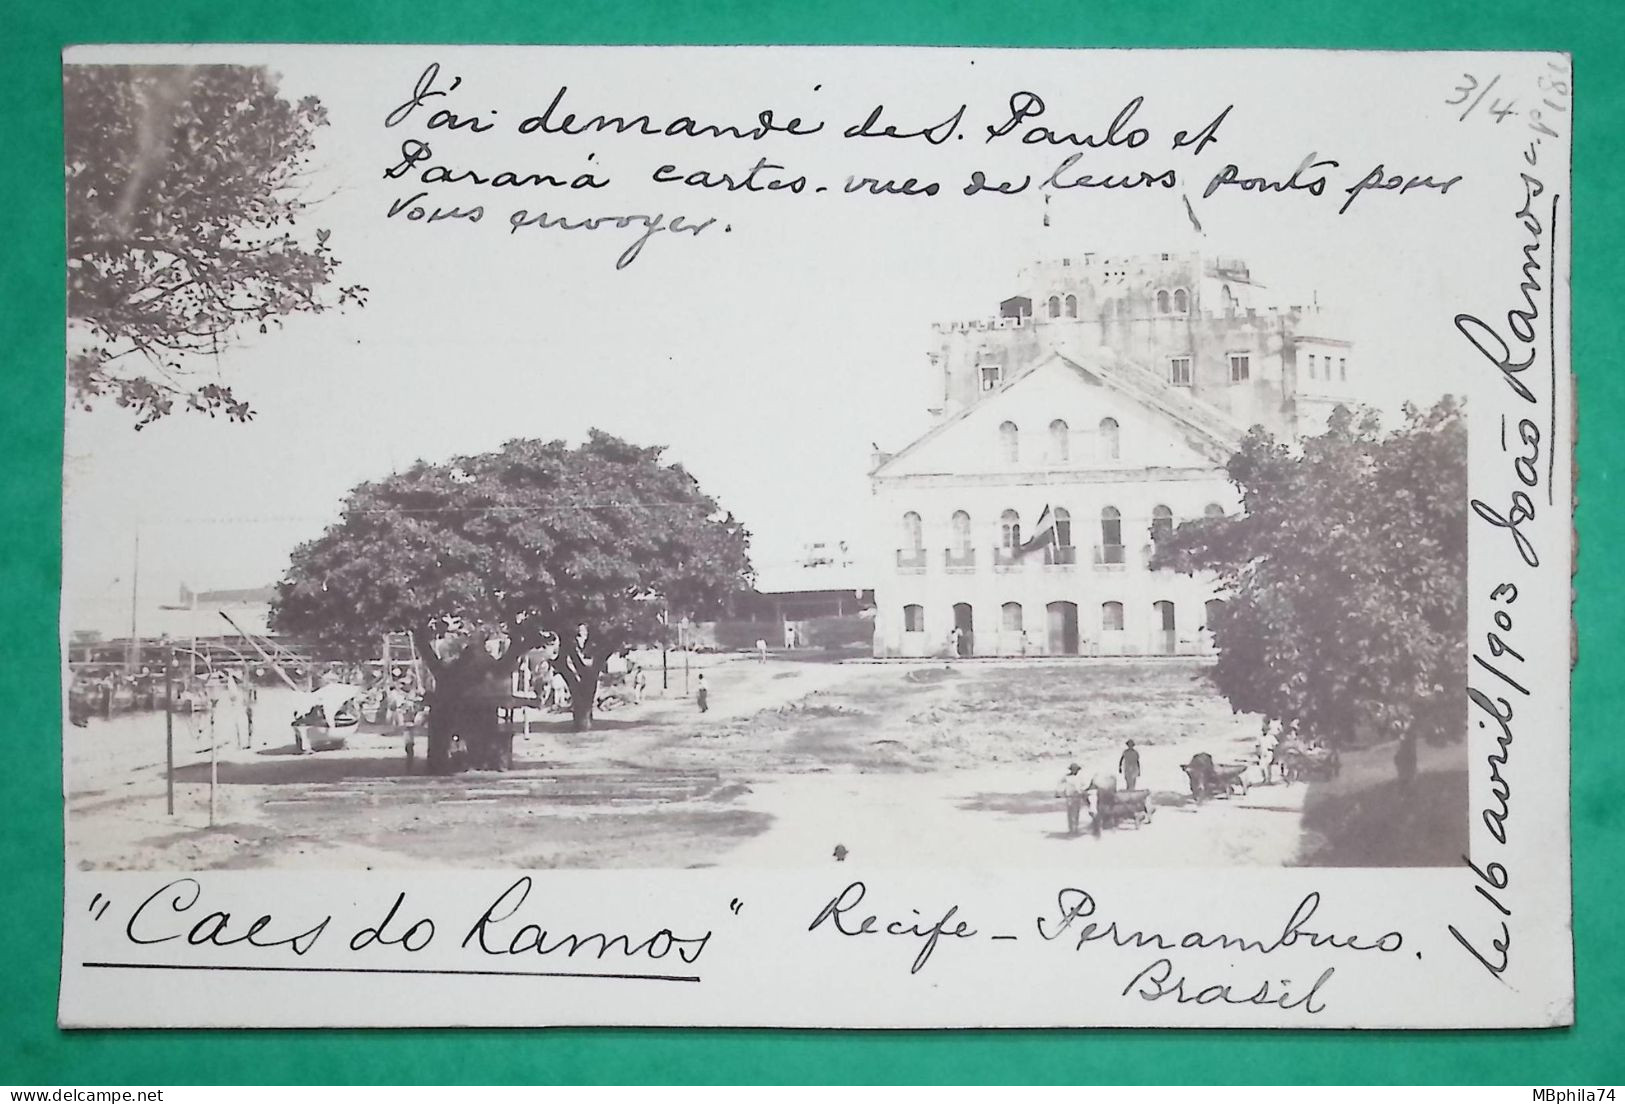 J'ai demandé de S. Paulo et
Paraná cartes-vues de leurs ponts pour
vous envoyer.
3/4
"Caes do Ramos" Recife - Pernambuco.
Brasil
le 16 avril 1903 João Ramos
MBphila74